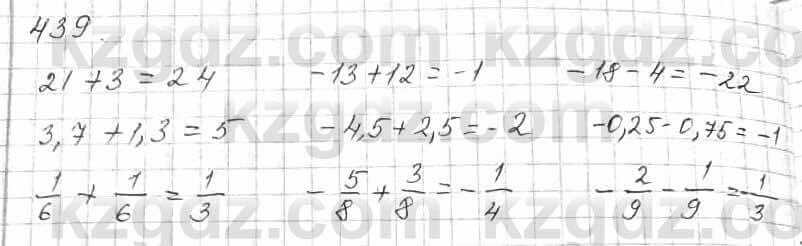 439.
21 + 3 = 24 -13 + 12 = -1 -18 - 4 = -22
3,7 + 1,3 = 5 -4,5 + 2,5 = -2 -0,25 - 0,75 = -1
1/6 + 1/6 = 1/3 -5/8 + 3/8 = -1/4 -2/9 - 1/9 = 1/3
kzgdz.com kzgdz.com
kzgdz.com
kzgdz.com kzgdz.com